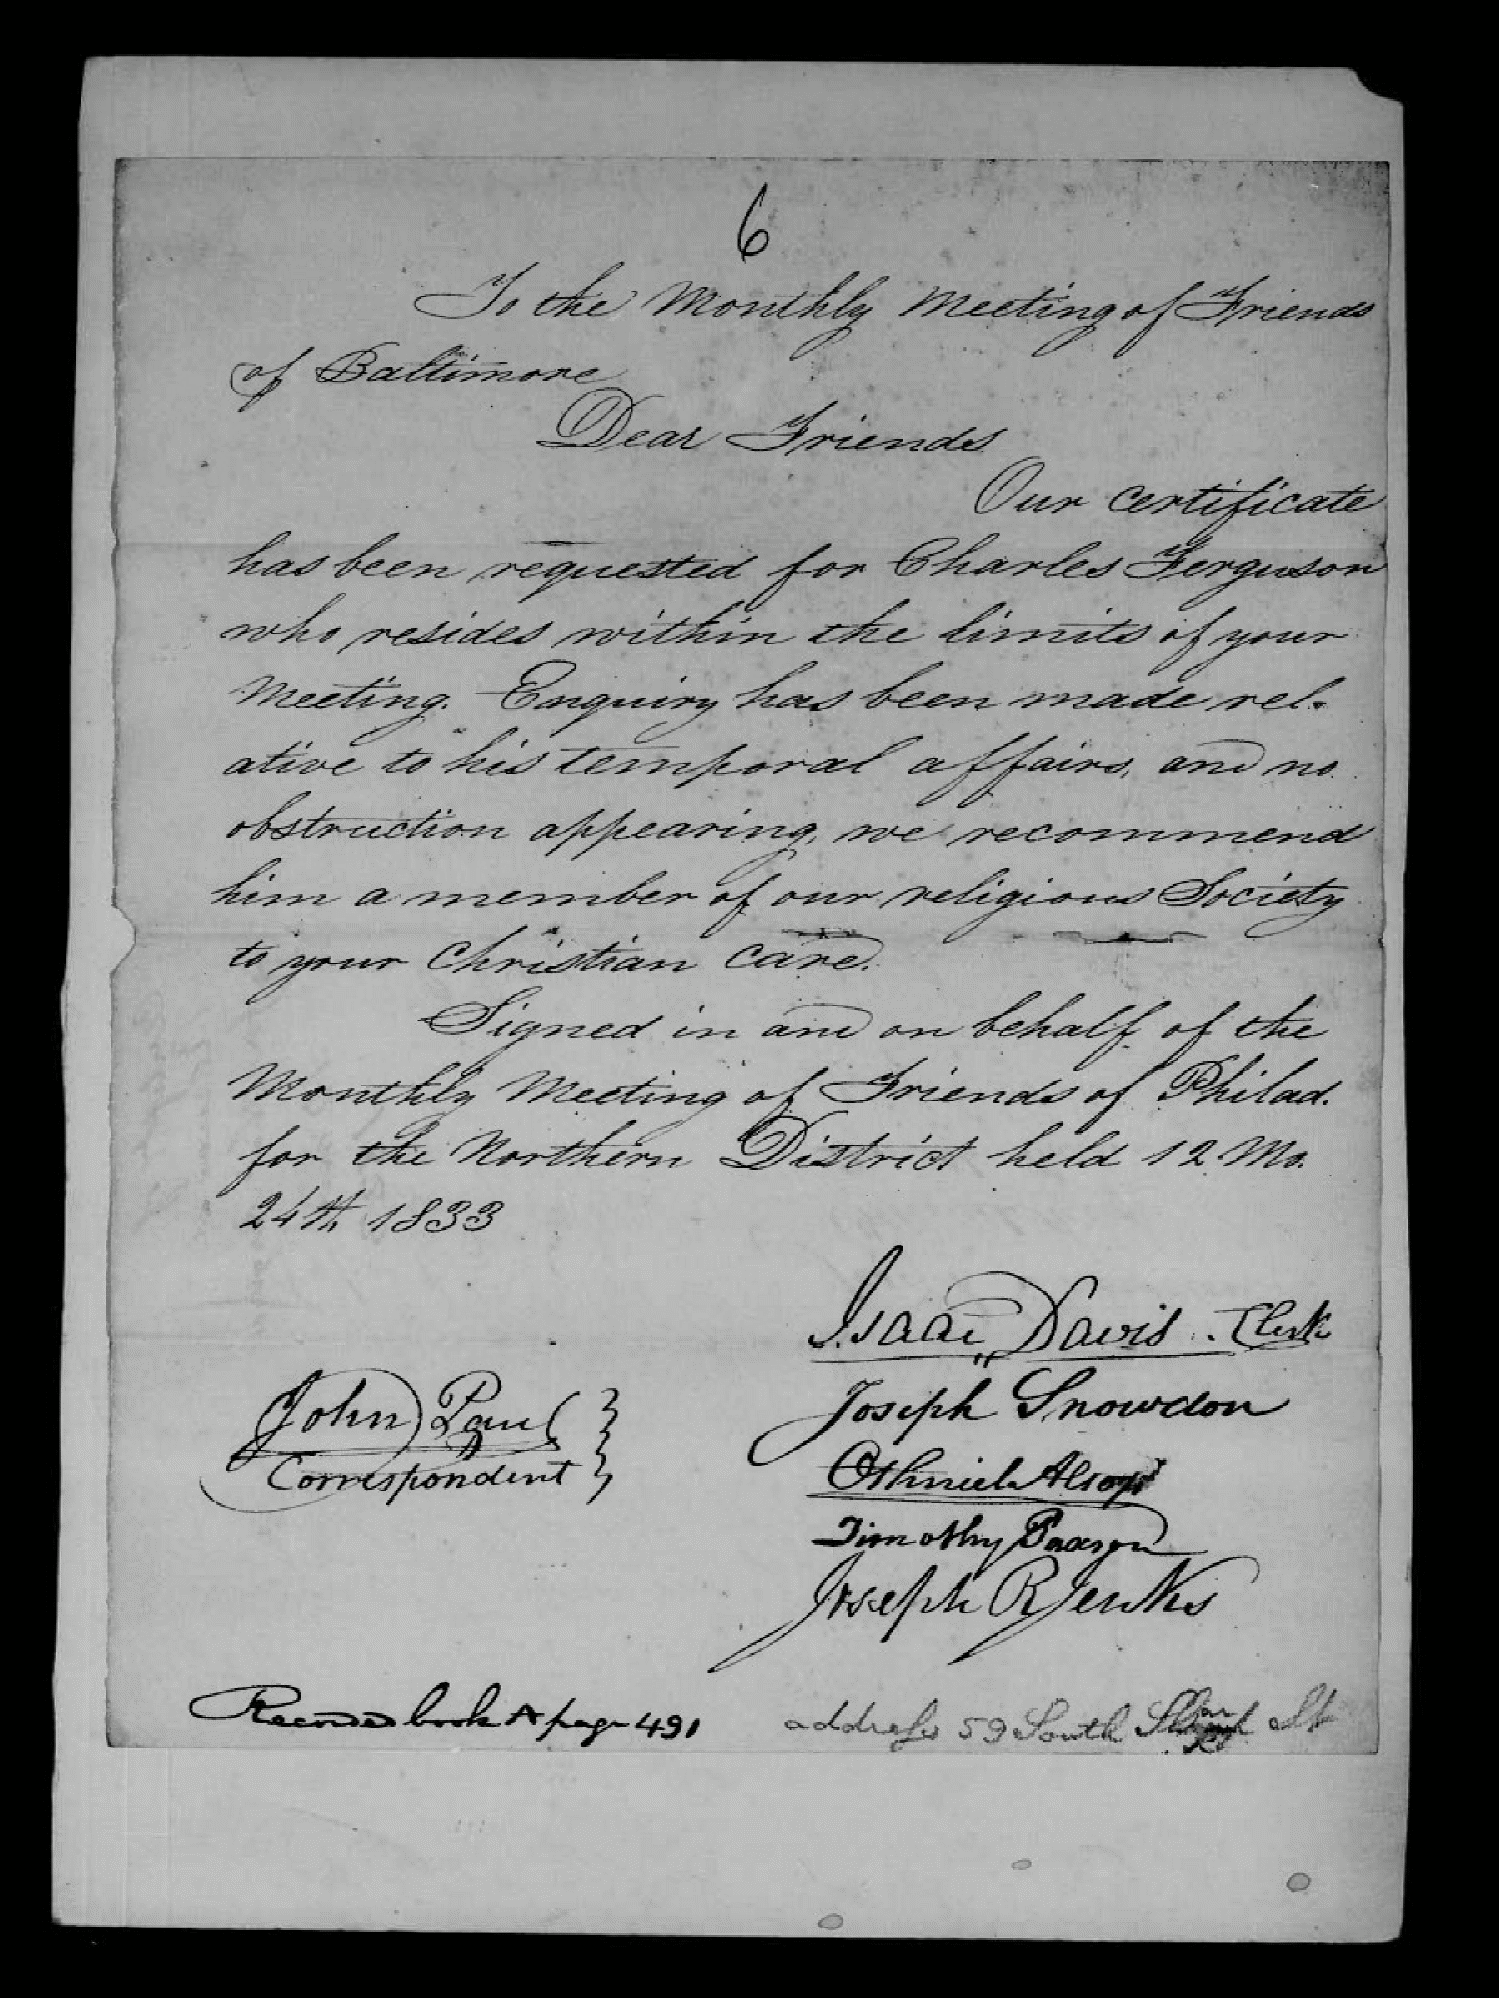 6
To the Monthly Meeting of Friends
of Baltimore
Dear Friends
Our certificate
has been requested for Charles Ferguson
who resides within the limits of your
Meeting. Enquiry has been made rel-
ative to his temporal affairs, and no
obstruction appearing, we recommend
him a member of our religious Society
to your Christian care.
Signed in and on behalf of the
Monthly Meeting of Friends of Philad.
for the Northern District held 12 Mo.
24th 1833
Isaac Davis. Clerk
Joseph Snowdon
Othniel Alsop
Timothy Paxson
Joseph R Jenks
John Paul
Correspondent
Recorded book A page 491
address 59 South St